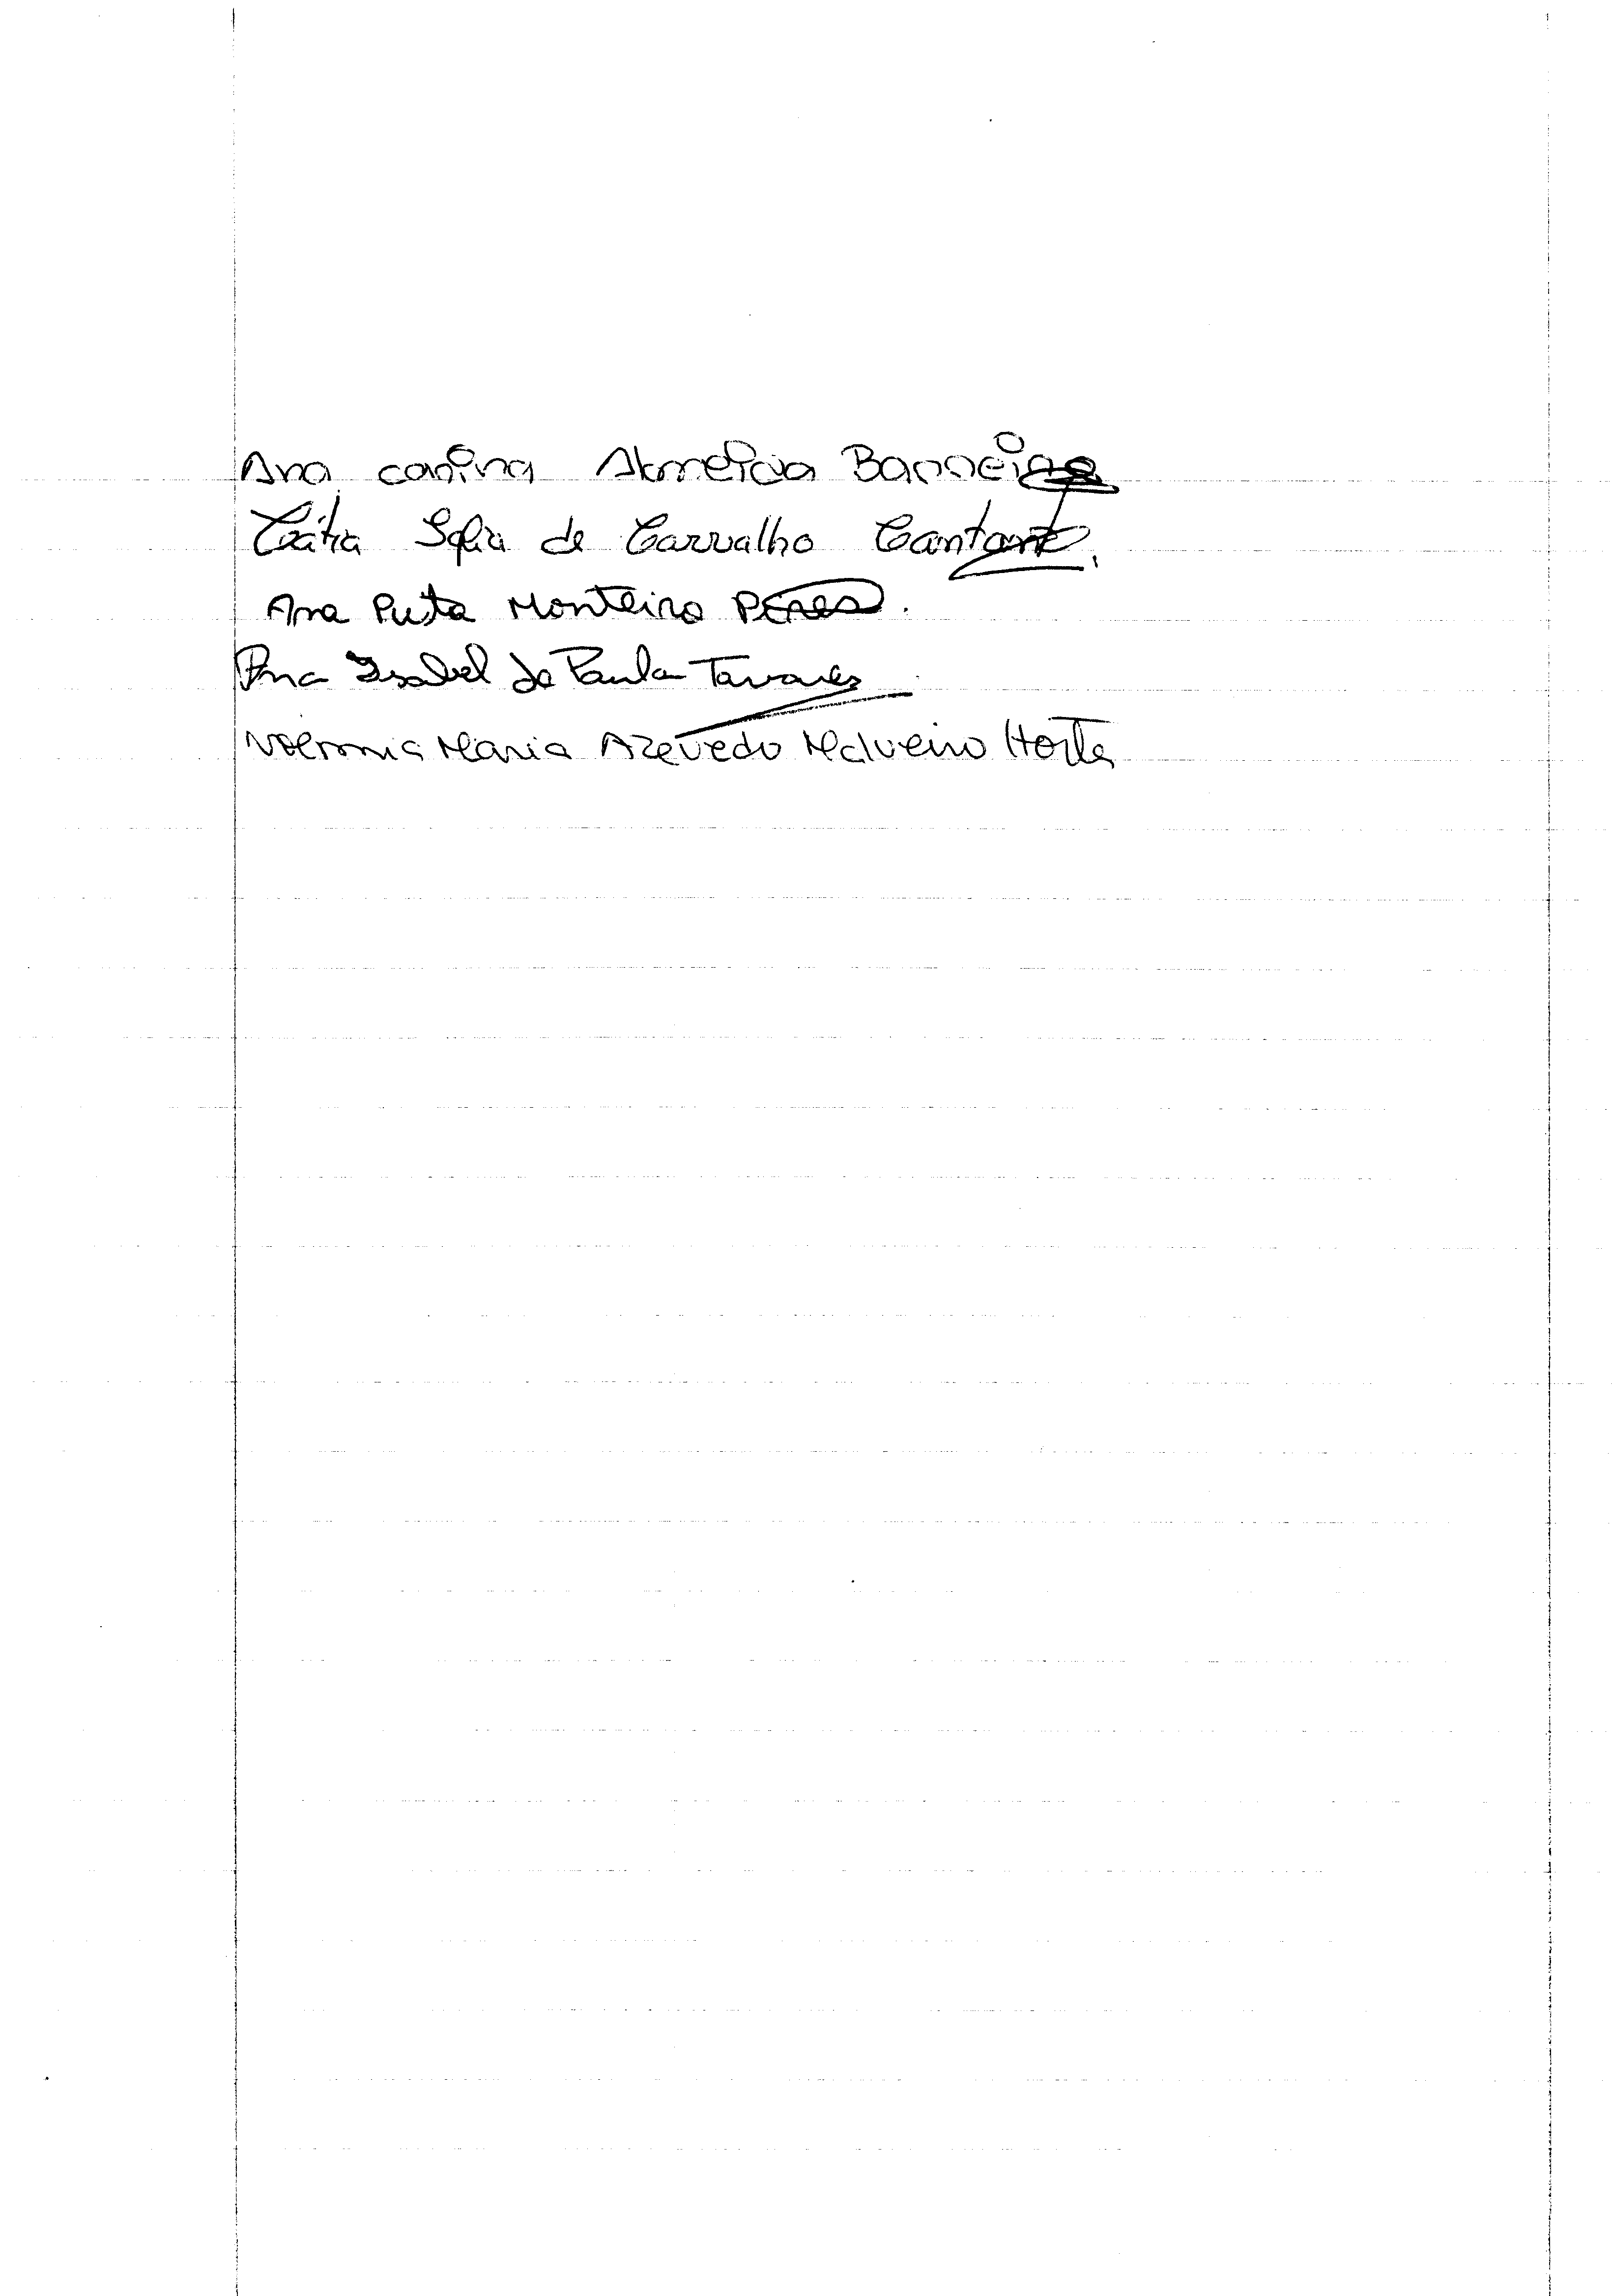 Ana Carina Almeida Barreira
Cátia Sofia de Carvalho Cantante
Ana Rita Monteiro Peres.
Ana Isabel de Paula Tavares
Maria Azevedo Horta